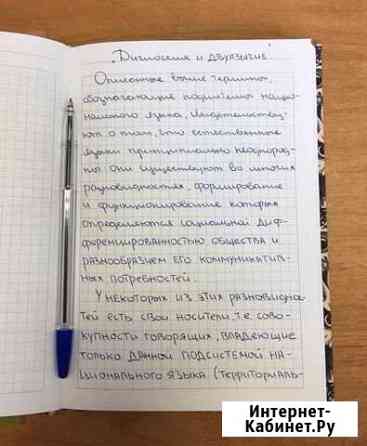 „Диглоссия и двуязычие"
Описанные выше термины,
обозначающие подсистемы нацио-
нального языка, свидетельствуют
о том, что естественные
языки принципиально неоднород-
ны: они существуют во многих
разновидностях, формирование
и функционирование которых
определяются социальной диф-
ференцированностью общества и
разнообразием его коммуникатив-
ных потребностей.
У некоторых из этих разновиднос-
тей есть свои носители, т.е. сово-
купности говорящих, владеющие
только данной подсистемой на-
ционального языка (территориаль-
Интернет-
Кабинет.Ру